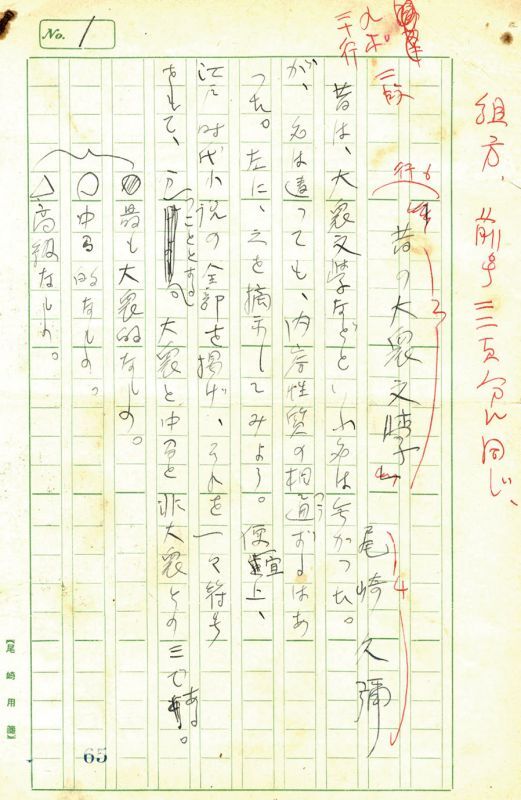 組方、前号三二頁分に同じ、
九ポ
三十行
二段
行6
昔の大衆文学
3
尾崎久彌
4
昔は、大衆文学などといふ名は無かつた。
が、名は違つても、内容性質の相通ずるはあ
つう
つた。左に、之を摘示してみよう。便宜上、
江戸時代小説の全部を掲げ、それを一々符号
をもて、
つこととする
。大衆と中間と非大衆との三である。
◍最も大衆的なもの。
○中間的なもの。
△高級なもの。
No. 1
65
【尾崎用箋】